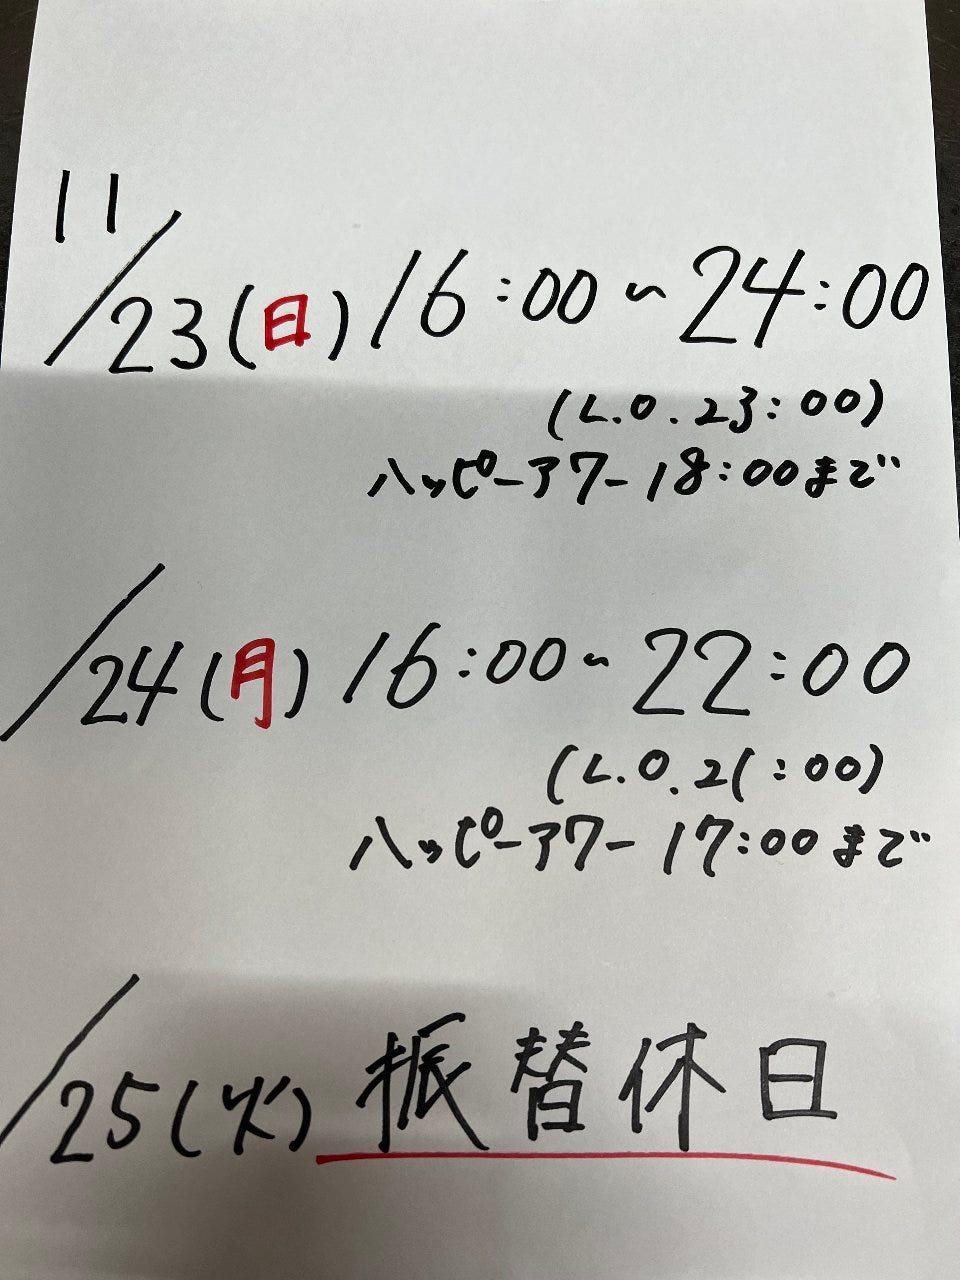 11/23(日) 16:00~24:00
(L.O.23:00)
ハッピーアワー 18:00まで
/24(月) 16:00~22:00
(L.O.21:00)
ハッピーアワー 17:00まで
/25(火) 振替休日